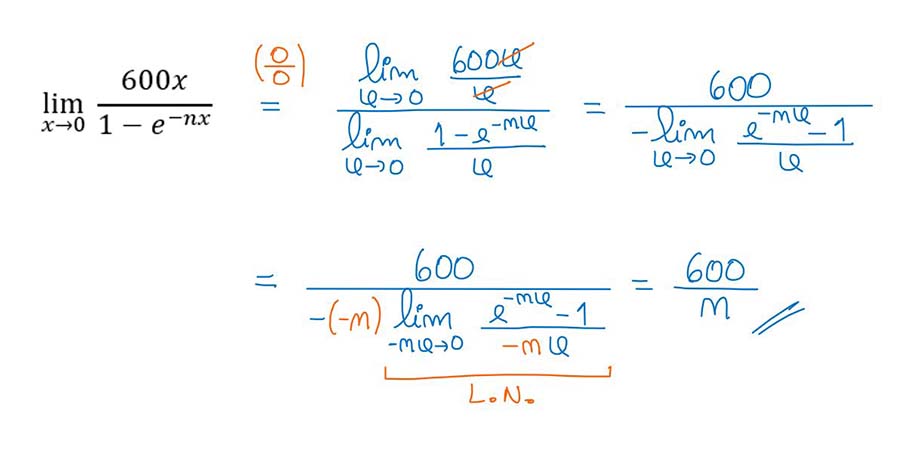 lim x→0 600x / (1 − e^(−nx)) (0/0) = (lim x→0 600x/x) / (lim x→0 (1 − e^(−nx))/x) = 600 / (−lim x→0 (e^(−nx) − 1)/x)
= 600 / (−(−n) lim −nx→0 (e^(−nx) − 1)/(−nx)) = 600/n
L.N.